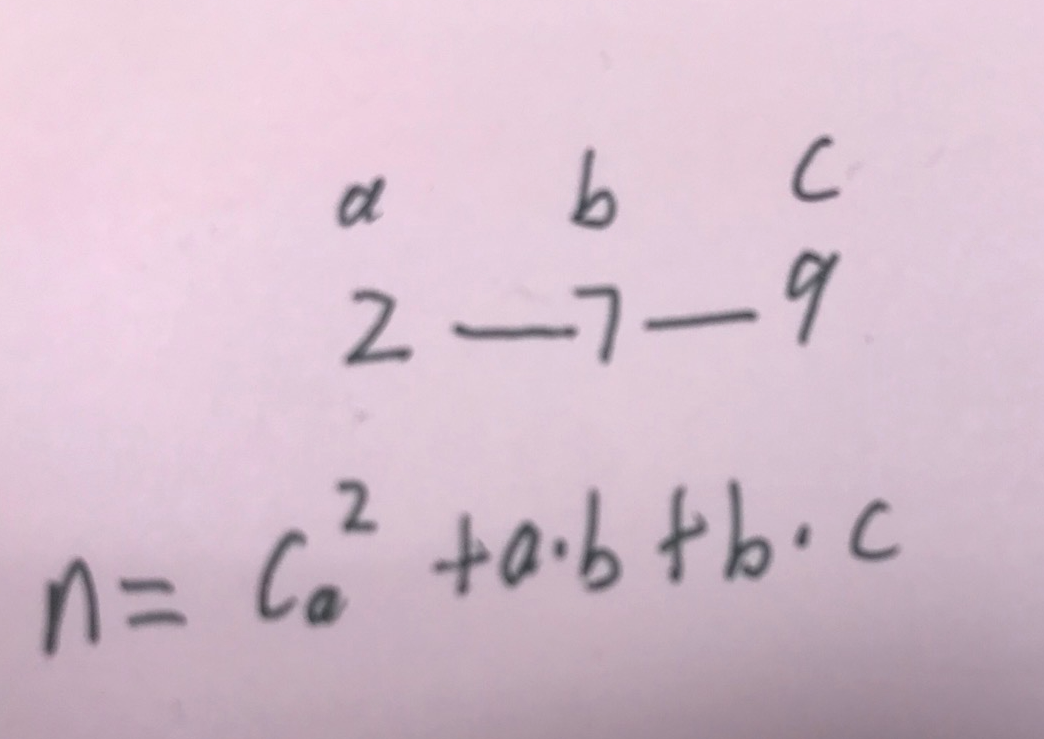 a b c
2 — 7 — 9
n = C²ₐ + a·b + b·c